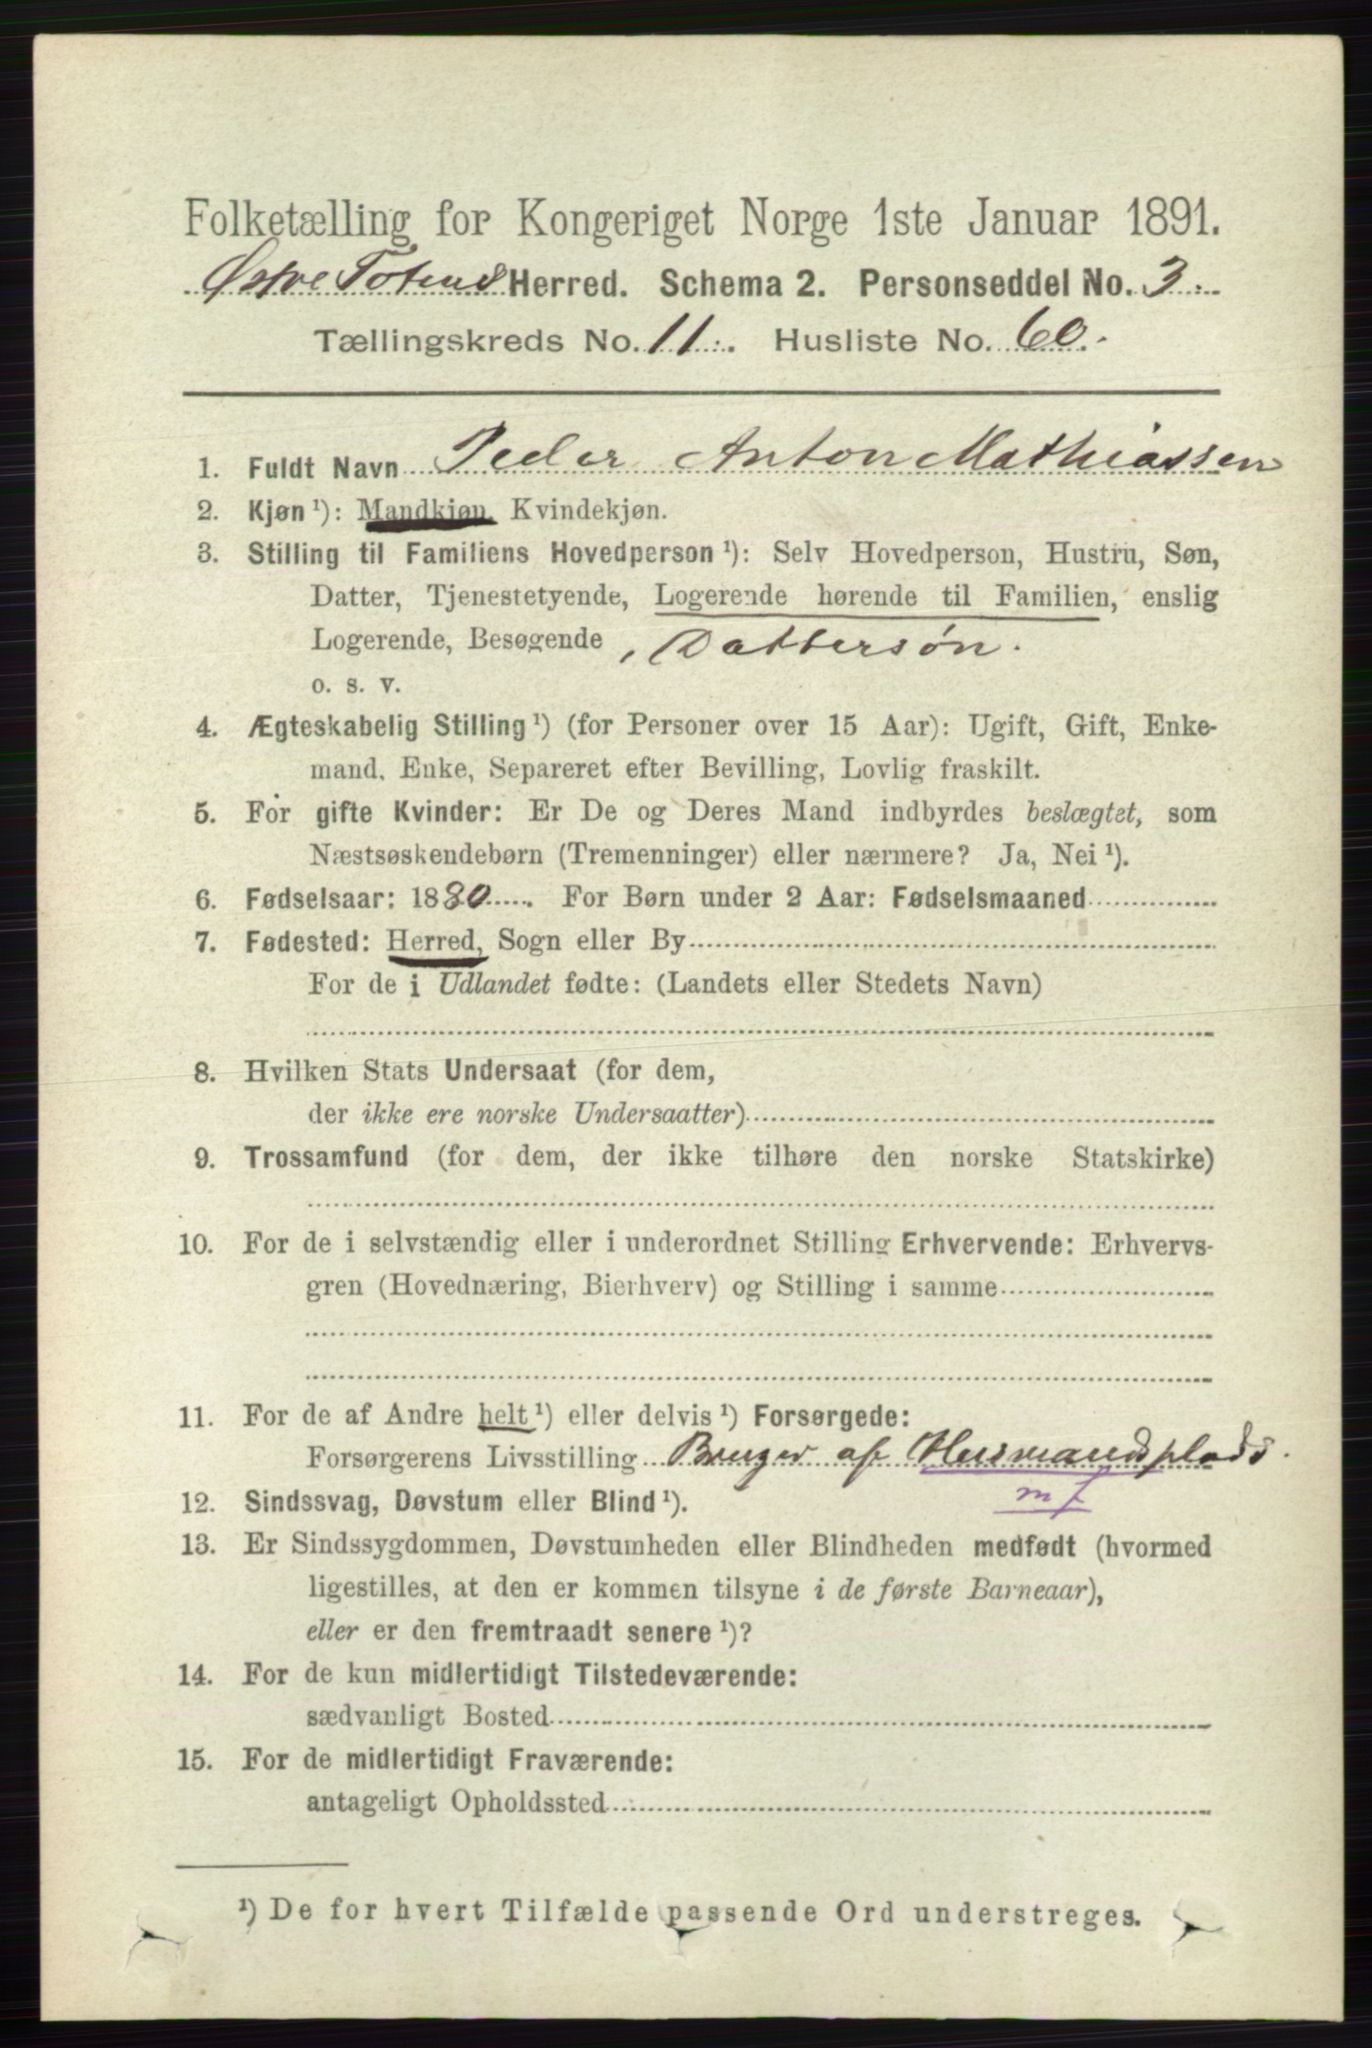 Folketælling for Kongeriget Norge 1ste Januar 1891.
Østre Totens Herred. Schema 2. Personseddel No. 3.
Tællingskreds No. 11. Husliste No. 60.
1. Fuldt Navn Peder Anton Mathiassen
2. Kjøn ¹): Mandkjøn, Kvindekjøn.
3. Stilling til Familiens Hovedperson ¹): Selv Hovedperson, Hustru, Søn,
Datter, Tjenestetyende, Logerende hørende til Familien, enslig
Logerende, Besøgende , Dattersøn.
o. s. v.
4. Ægteskabelig Stilling ¹) (for Personer over 15 Aar): Ugift, Gift, Enke-
mand, Enke, Separeret efter Bevilling, Lovlig fraskilt.
5. For gifte Kvinder: Er De og Deres Mand indbyrdes beslægtet, som
Næstsøskendebørn (Tremenninger) eller nærmere? Ja, Nei ¹).
6. Fødselsaar: 1880. For Børn under 2 Aar: Fødselsmaaned
7. Fødested: Herred, Sogn eller By
For de i Udlandet fødte: (Landets eller Stedets Navn)
8. Hvilken Stats Undersaat (for dem,
der ikke ere norske Undersaatter)
9. Trossamfund (for dem, der ikke tilhøre den norske Statskirke)
10. For de i selvstændig eller i underordnet Stilling Erhvervende: Erhvervs-
gren (Hovednæring, Bierhverv) og Stilling i samme
11. For de af Andre helt ¹) eller delvis ¹) Forsørgede:
Forsørgerens Livsstilling Bruger af Husmandsplads.
m f
12. Sindssvag, Døvstum eller Blind ¹).
13. Er Sindssygdommen, Døvstumheden eller Blindheden medfødt (hvormed
ligestilles, at den er kommen tilsyne i de første Barneaar),
eller er den fremtraadt senere ¹)?
14. For de kun midlertidigt Tilstedeværende:
sædvanligt Bosted
15. For de midlertidigt Fraværende:
antageligt Opholdssted
¹) De for hvert Tilfælde passende Ord understreges.